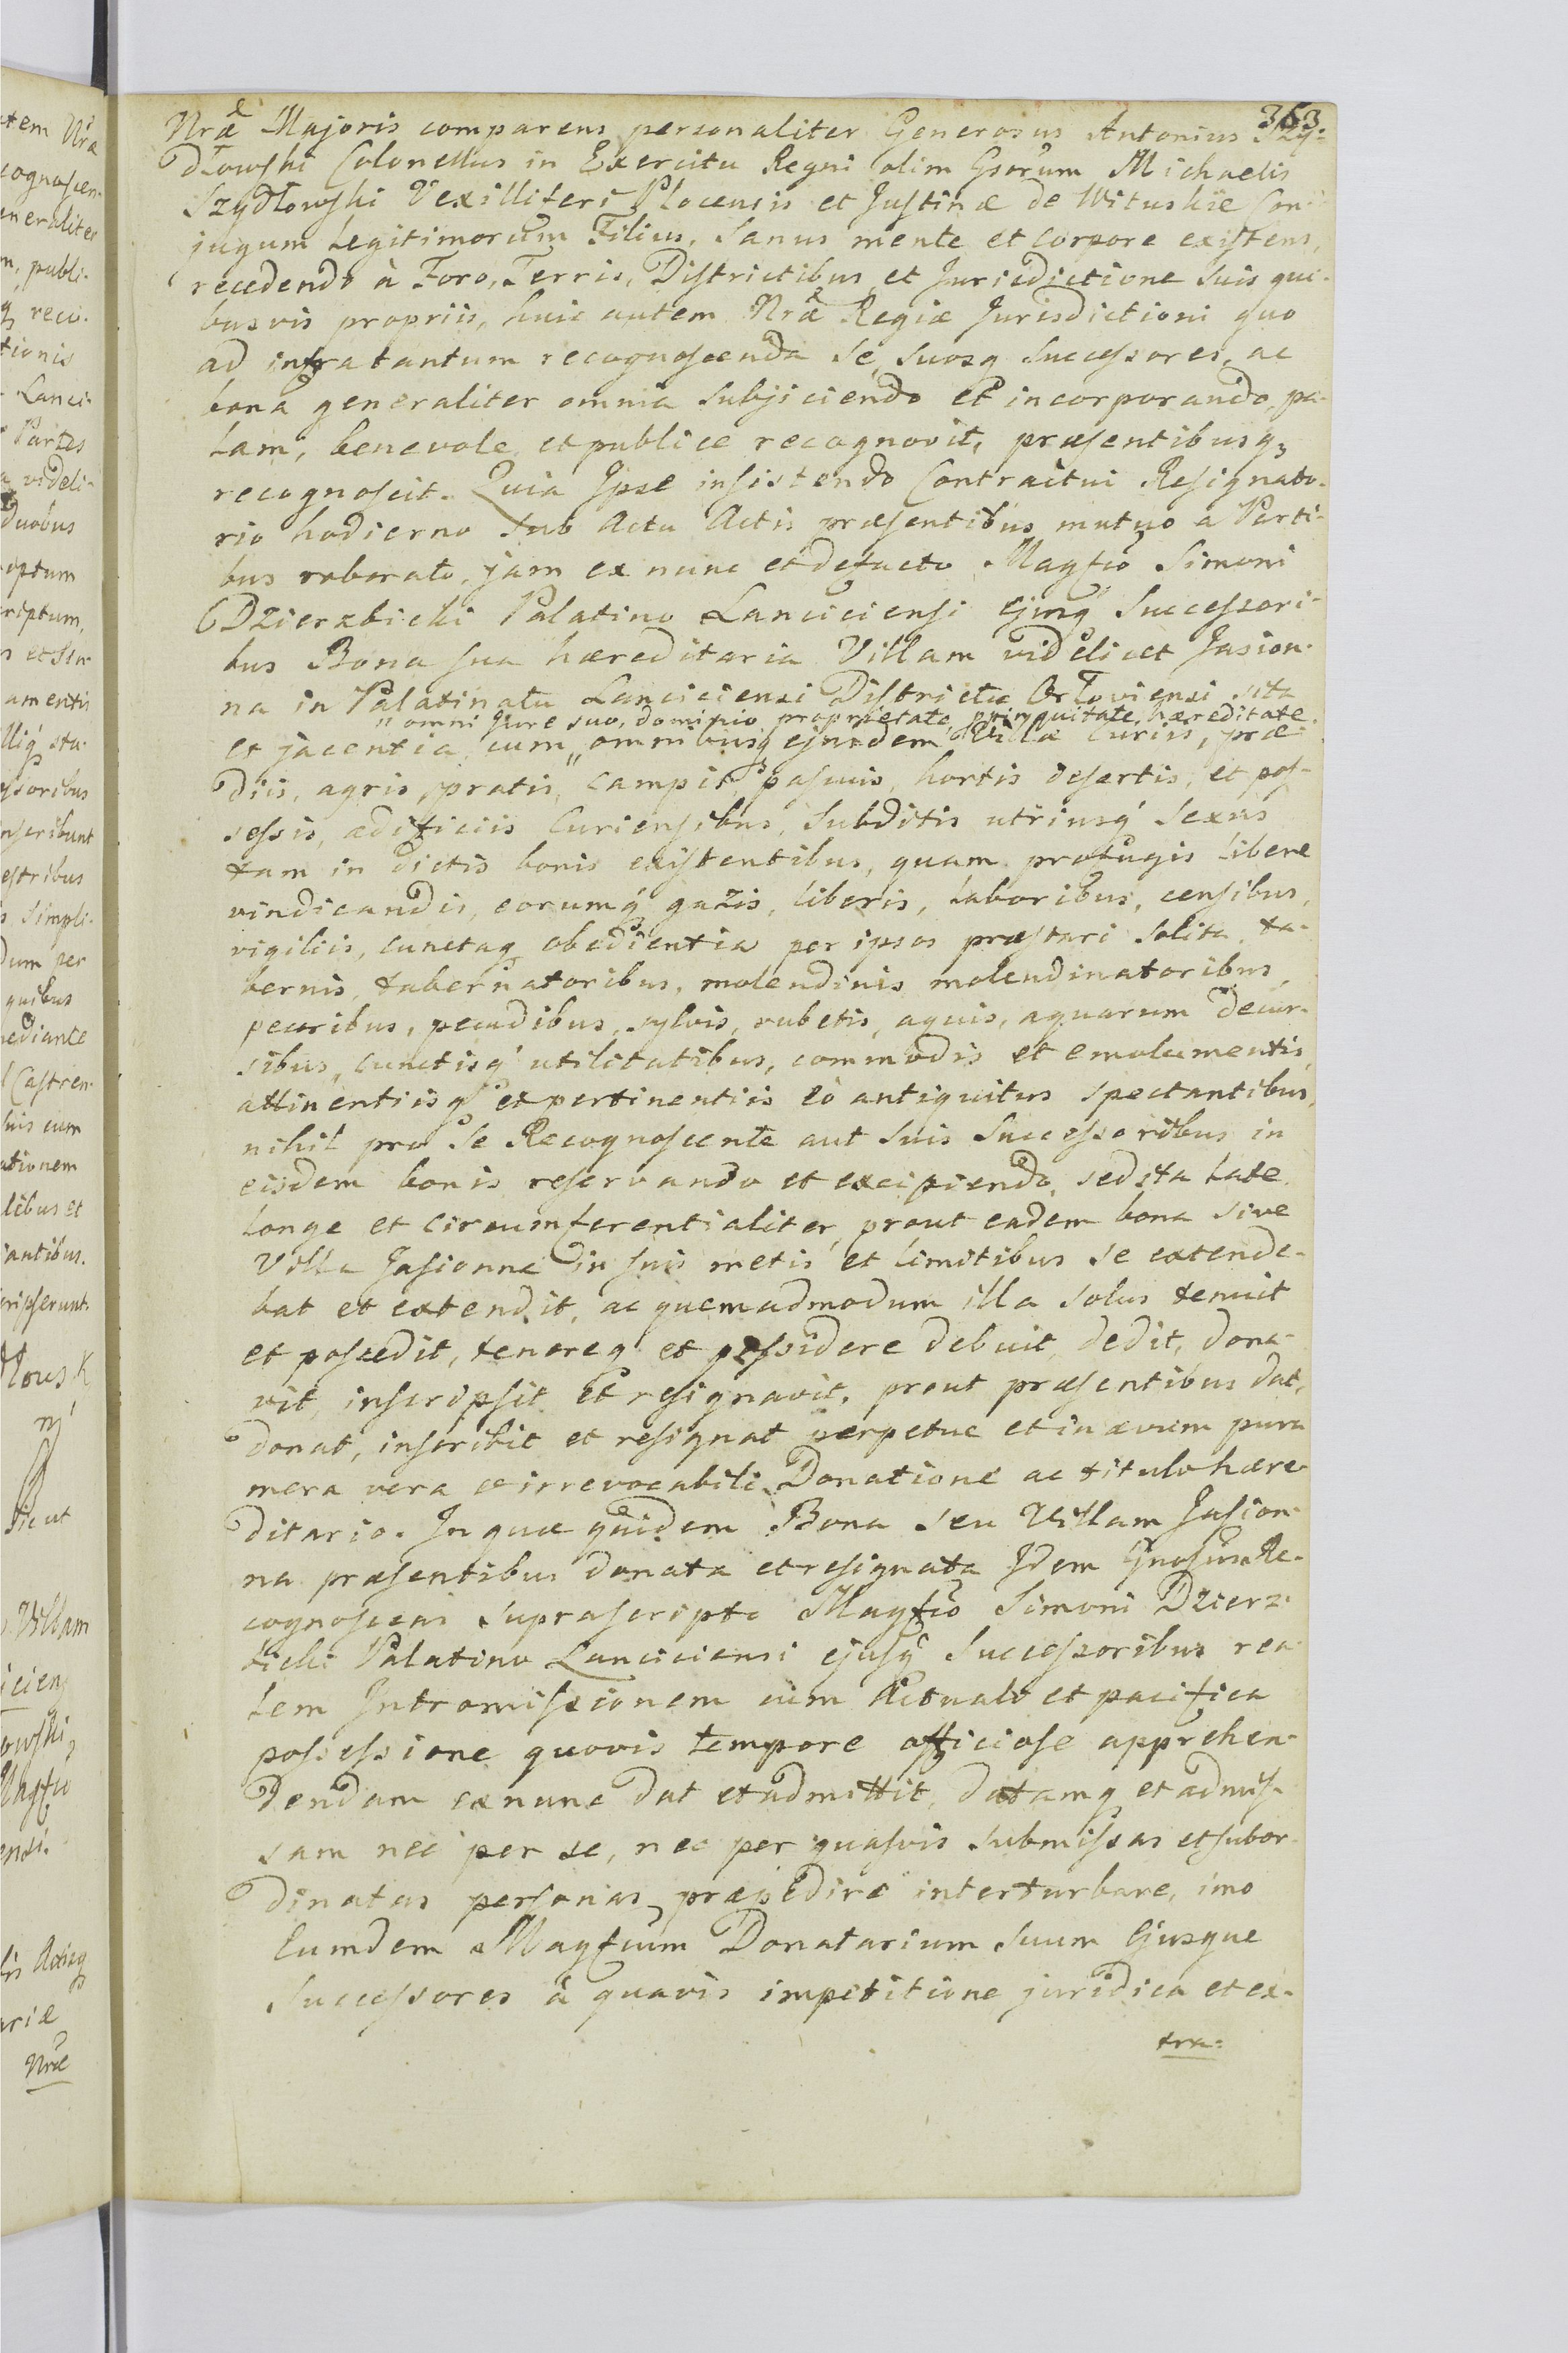 363
Nræ Majoris comparens personaliter Generosus Antonius Szy-
dłowski Colonellus in Exercitu Regni olim Gsorum Michaelis
Szydłowski Vexilliferi Plocensis et Justinæ de Wituskie Con-
jugum Legitimorum Filius, Sanus mente et Corpore existens,
recedendo à Foro, Terris, Districtibus et Jurisdictione Suis qui-
busvis propriis, huic autem Nræ Regiæ Jurisdictioni quo
ad infra tantum recognoscenda Se, Suosq Successores, ac
bona generaliter omnia Subjiciendo et incorporando, pa-
lam, benevole et publice recognovit, præsentibusq
recognoscit. Quia Ipse insistendo Contractui Resignato-
rio hodierno Sub Actu Actis præsentibus mutuo a Parti-
bus roborato, jam ex nunc et defacto Magfco Simoni
Dzierzbicki Palatino Lanciciensi Ejusq Successori-
bus Bona sua hæreditaria Villam videlicet Jasion-
na in Palatinatu Lanciciensi Districtu Orłoviensi sita
" omni Jure suo, dominio proprietate, hæreditate
et jacentia cum " omnibusq ejusdem Villæ Curiis, præ-
diis, agris, pratis, campis, pascuis, hortis desertis, et pos-
sessis, ædificiis Curiensibus, Subditis utriusq Sexus
tam in dictis bonis existentibus, quam profugis libere
vindicandis, eorumq gazis, liberis, laboribus, censibus,
vigiliis, cunctaq obedientia per ipsos præstari Solita, ta-
bernis, tabernatoribus, molendinis molendinatoribus,
pecoribus, pecudibus, sylvis, rubetis, aquis, aquarum decur-
sibus, cunctisq utilitatibus, commodis et emolumentis,
attinentiisq et pertinentiis eò antiquitus Spectantibus,
nihil pro Se Recognoscente aut Suis Successoribus in
eisdem bonis reservando et excipiendo, sed ita late
longe et circumferentialiter, prout eadem bona Sive
Villa Jasionna in suis metis et limitibus Se extende-
bat et extendit, ac quemadmodum illa Solus tenuit
et possedit, tenereq et possidere debuit, dedit, dona-
vit, inscripsit et resignavit, prout præsentibus dat,
donat, inscribit et resignat perpetue et in ævum pura
mera vera et irrevocabili Donatione ac titulo hære-
ditario. In quæ quidem Bona seu Villam Jasion-
na præsentibus donata et resignata Idem Gnosus Re-
cognoscens suprascripto Magfco Simoni Dzierz-
bicki Palatino Lanciciensi ejusq Successoribus rea-
lem Intromissionem cum Actuali et pacifica
possessione quovis tempore officiose apprehen-
dendam exnunc dat et admittit, datamq et admis-
sam nec per se, nec per quasvis submissas et subor-
dinatas personas præpedire interturbare, imo
Eumdem Magfcum Donatarium Suum Ejusque
Successores à quavis impetitione juridica et ex-
tra-